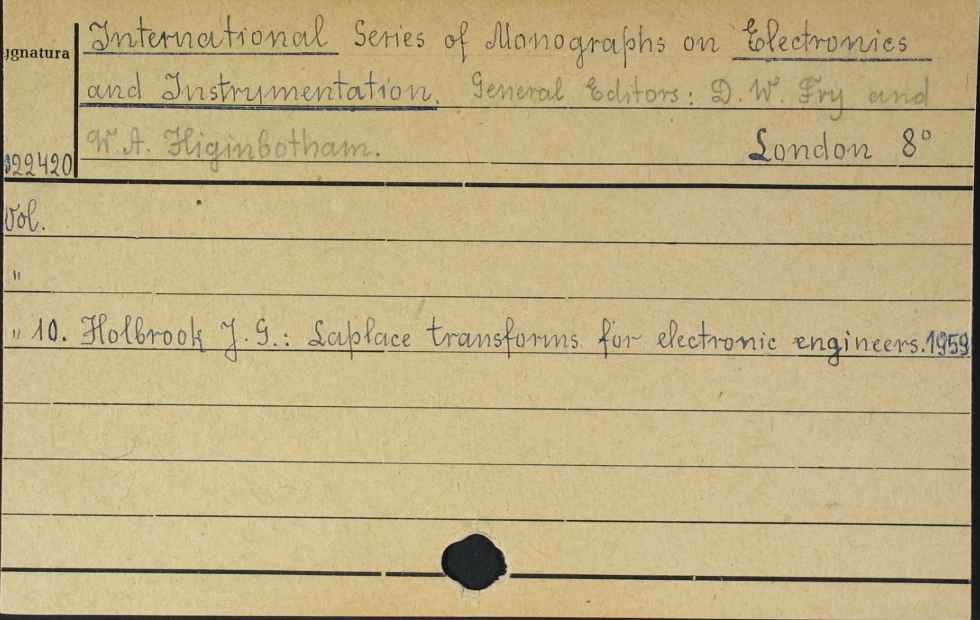 International Series of Monographs on Electronics
ygnatura
and Instrumentation. General Editors: D. W. Fry and
W. A. Higinbotham. London 8°
322420
Vol.
"
" 10. Holbrook J. G.: Laplace transforms for electronic engineers. 1959